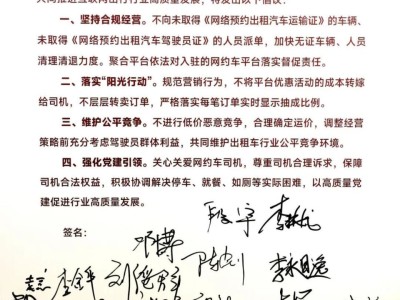 共同推进互联网出行行业高质量发展，特发出以下倡议：
一、坚持合规经营。不向未取得《网络预约出租汽车运输证》的车辆、
未取得《网络预约出租汽车驾驶员证》的人员派单，加快无证车辆、人员
清理清退力度。聚合平台依法对入驻的网约车平台落实督促责任。
二、落实“阳光行动”。规范营销行为，不将平台优惠活动的成本转嫁
给司机，不层层转卖订单，严格落实每笔订单实时显示抽成比例。
三、维护公平竞争。不进行低价恶意竞争，合理确定运价，调整经营
策略前充分考虑驾驶员群体利益，共同维护出租车行业公平竞争环境。
四、强化党建引领。关心关爱网约车司机，尊重司机合理诉求，保障
司机合法权益，积极协调解决停车、就餐、如厕等实际困难，以高质量党
建促进行业高质量发展。
签名：